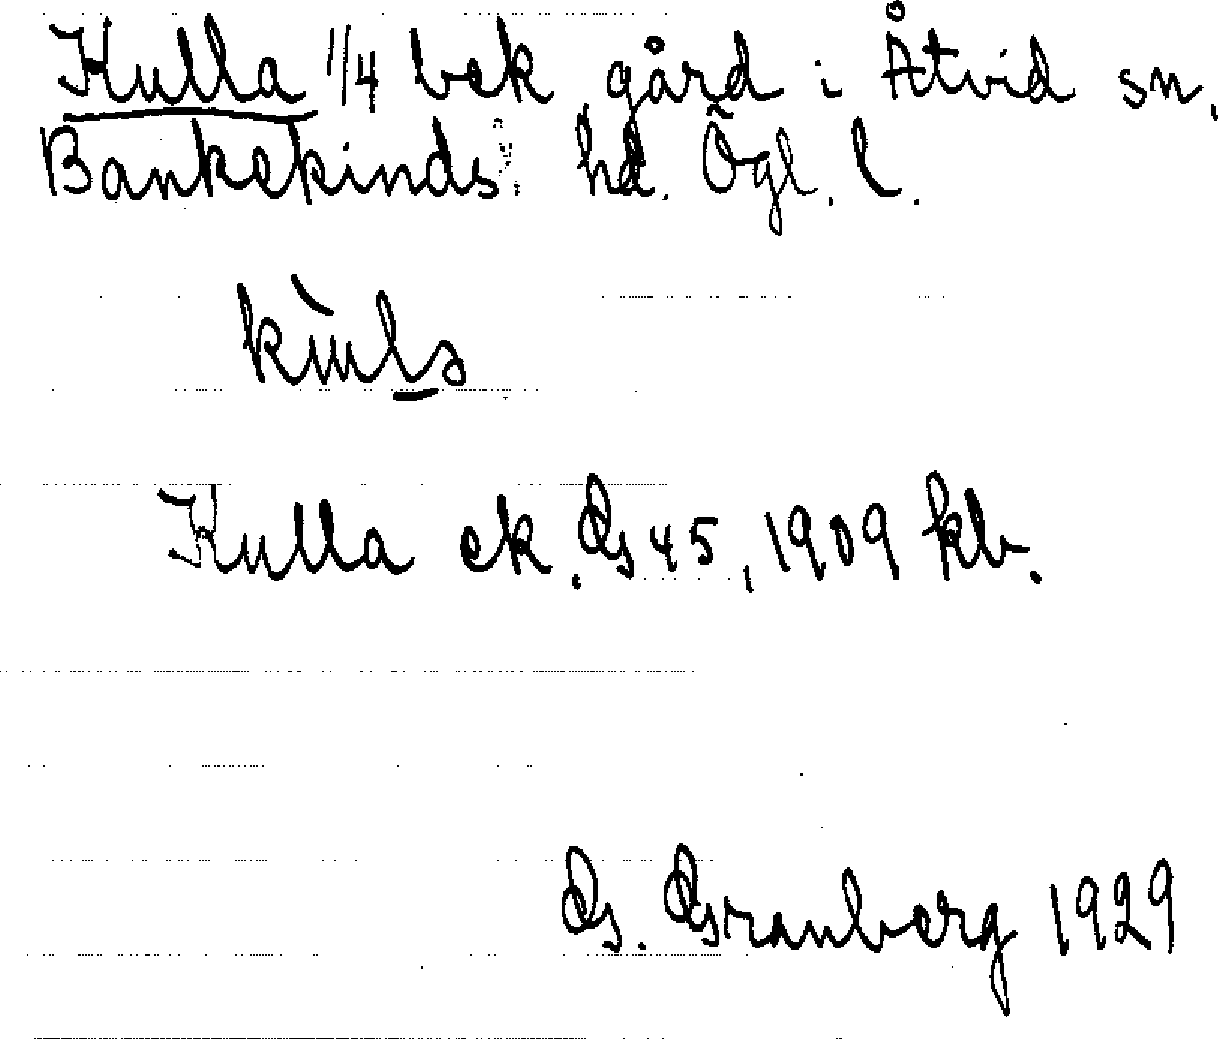 Kulla 1/4 bek gård i Åtvid sn,
Bankekinds hd. Ögl. l.
Kulla ek. G 45, 1909 kb.
G. Granberg 1929